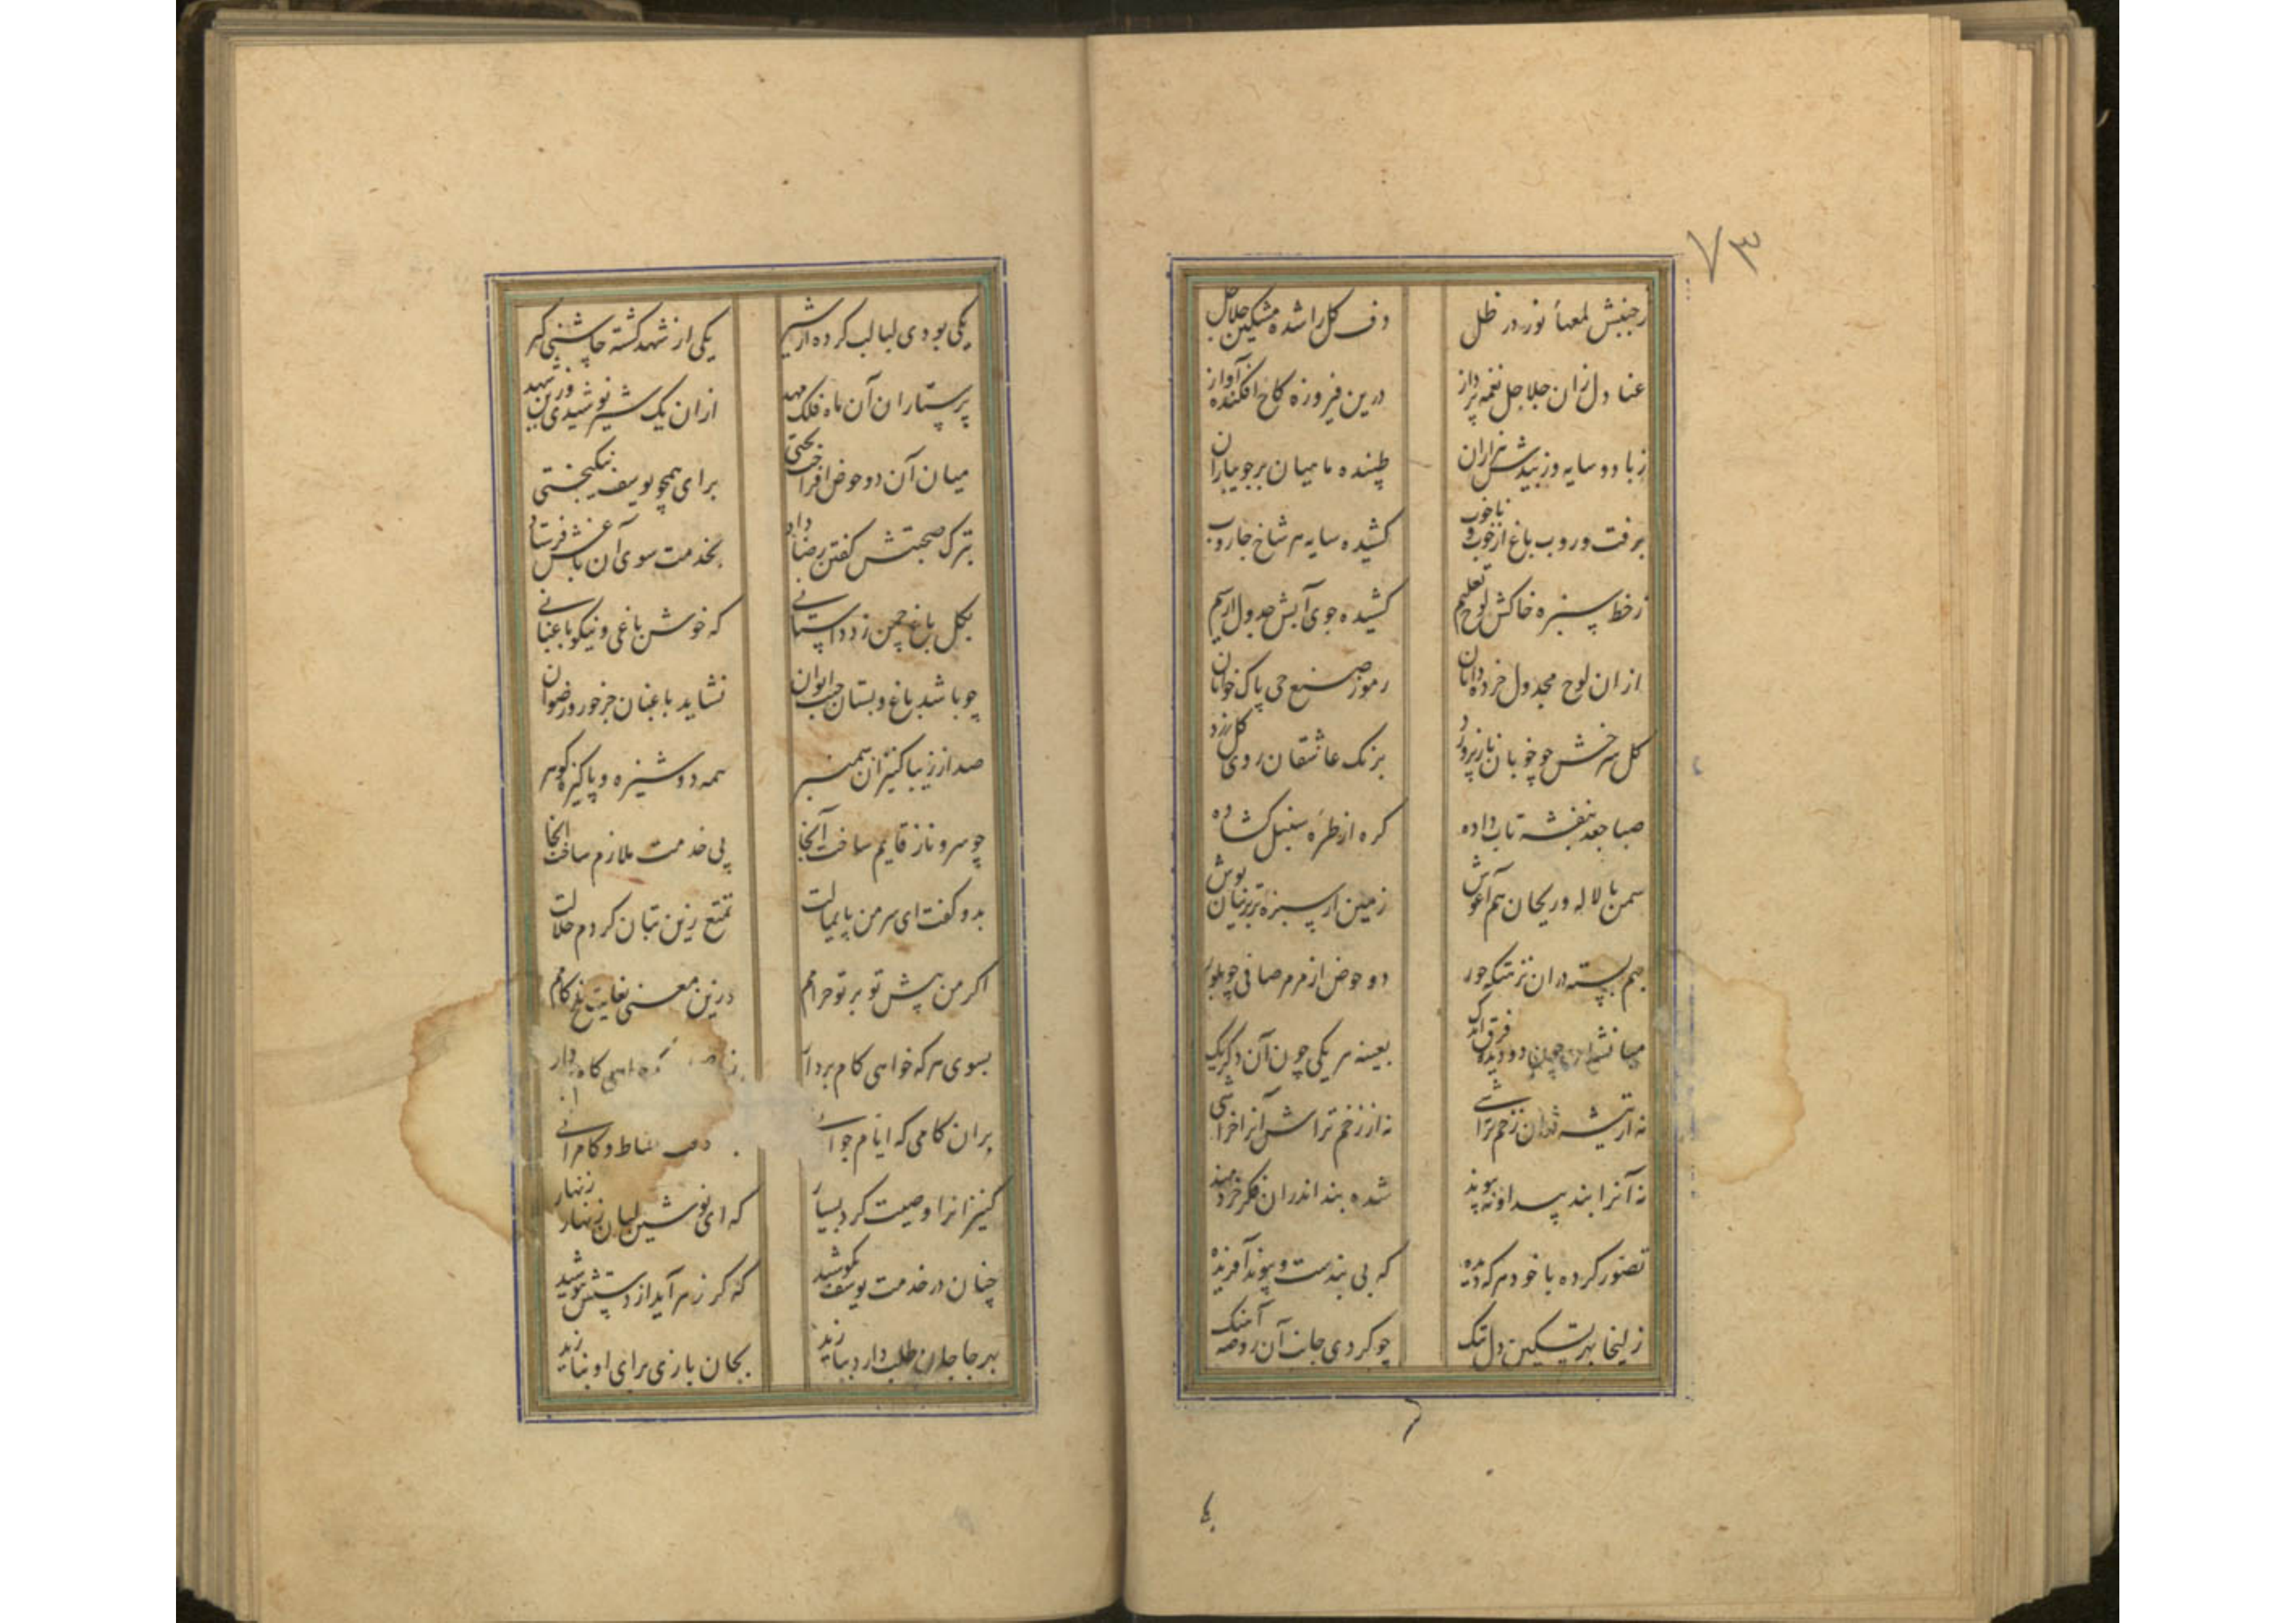 ۷۳
زجنبش لمعهٔ نور در ظل دف گل را شده مشکین جلاجل
عنادل زان جلاجل نغمه پرداز درین فیروزه کاخ افکنده آواز
زباد و سایه وز بیدش هزاران طپنده ماهیان بر جویباران
برفت و روب باغ از خوب و ناخوب کشیده سایه هر شاخ جاروب
زخط سبزه خاکش لوح تعلیم کشیده جوی آبش جدول از سیم
از ان لوح مجدول خرده دانان رموز صنع حی پاک خوانان
گل سرخش چو خوبان ناز پرورد برنگ عاشقان روی گل زرد
صبا جعد بنفشه تاب داده گره از طرهٔ سنبل گشاده
سمن با لاله و ریحان هم آغوش زمین از سبزه تر پرنیان پوش
بهم بسته دران نزهتگه حور دو حوض از مرمر صافی چو بلور
میانشان چون دو دیده فرق اندک بعینه هر یکی چون آن دگر یک
نه از تیشه دران زخم تراشی نه از زخم تراش آنرا خراشی
نه آنرا بند پیدا و نه پیوند شده بند اندران فکر خردمند
تصور کرده با خود هر که دیده که بی بندست و پیوند آفریده
زلیخا بهر تسکین دل تنگ چو کردی جانب آن روضه آهنگ
یکی بودی لبالب کرده از شیر یکی از شهد گشته چاشنی گیر
پرستاران آن ماه فلک مهد ازان یک شیر نوشیدی وزین شهد
میان آن دو حوض افراخت تختی برای همچو یوسف نیکبختی
بترک صحبتش گفتن رضا داد بخدمت سوی آن باغش فرستاد
بگل باغ چمن زد داستانی که خوش باغی و نیکو باغبانی
چو باشد باغ و بستان جنب ایوان نشاید باغبان جز حور و رضوان
صد از زیبا کنیزان سمنبر همه دوشیزه و پاکیزه گوهر
چو سرو ناز قایم ساخت آنجا پی خدمت ملازم ساخت آنجا
بدو گفت ای سر من پایمالت تمتع زین بتان کردم حلالت
اگر من پیش تو بر تو حرامم درین معنی بغایت تلخ کامم
بسوی هر که خواهی کام بردار
بران کامی که ایام جوانی نشاط و کامرانی
کنیزانرا وصیت کرد بسیار که ای نوشین لبان زنهار زنهار
چنان در خدمت یوسف بکوشید که گر زهر آید از دستش بنوشید
بهر جا جان طلب دارد بیازید بجان بازی برای او بنازید